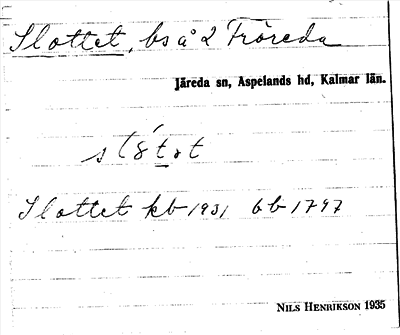 Slottet, bs å 2 Fröreda
Järeda sn, Aspelands hd, Kalmar län.
Slottet kb 1931 bb 1797
NILS HENRIKSON 1935